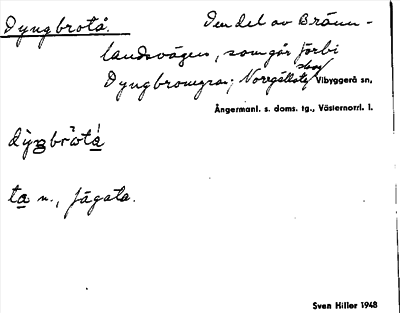 Dyngbrotå. Den del av Bränn-
landsvägen, som går förbi
Dyngbromyran; Vibyggerå sn,
Ångermanl. s. doms. tg., Västernorrl. l.
dỳngbròtá
ta n., fägata.
Sven Hiller 1948